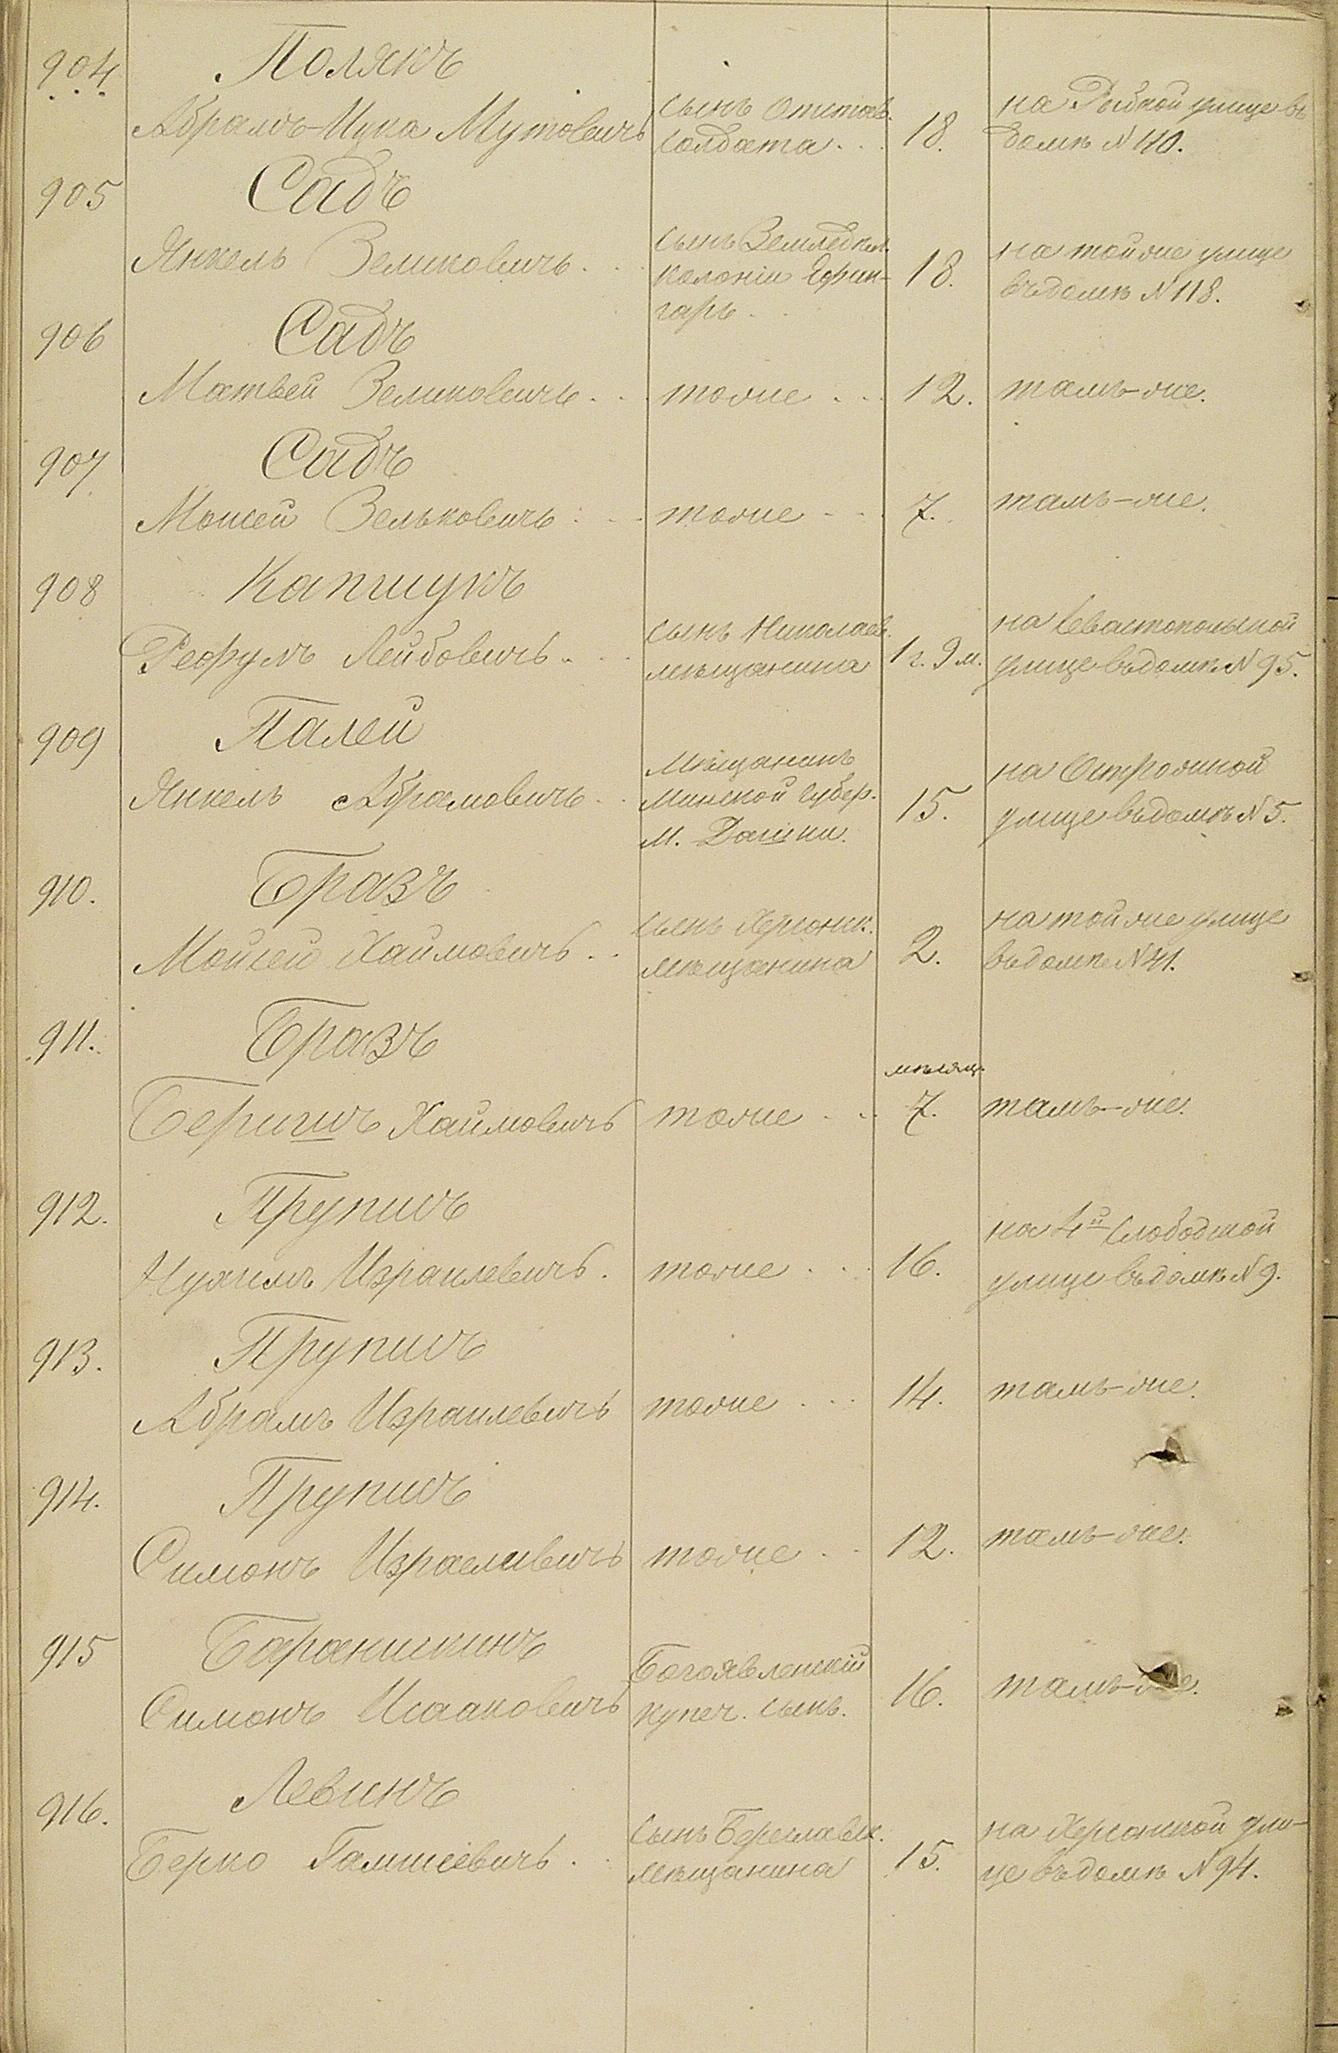 904. Полякъ
Абрамъ-Мука Мутовичъ сынъ отстав. солдата. 18. на Рыбной улице въ домѣ N 110.
905 Садъ
Янкель Зеликовичъ. сынъ Земледѣл. колоніи 18. на той же улице въ домѣ N 118.
906 Садъ
Матвей Зеликовичъ. тоже 12. тамъ-же.
907 Садъ
Моисей Зельковичъ. тоже 7. тамъ-же.
908 Капшукъ
Лейбовичъ. сынъ Николаев. мѣщанина 1 г. 9 м. на Севастопольской улице въ домѣ N 95.
909 Палей
Янкель Абрамовичъ. Мѣщанинъ Минской губер. М. 15. на улице въ домѣ N 5.
910. Бразъ
Мойсей Хаимовичъ. сынъ Херсонск. мѣщанина 2. на той же улице въ домѣ N 41.
911. Бразъ
Беришъ Хаимовичъ тоже мѣсяц. 7. тамъ-же.
912. Пруписъ
Нухимъ Израилевичъ. тоже 16. на 4й Слободской улице въ домѣ N 9.
913. Пруписъ
Абрамъ Израилевичъ тоже 14. тамъ-же.
914. Пруписъ
Симонъ Израелевичъ тоже 12. тамъ-же.
915 Баранишкинъ
Симонъ Исааковичъ Богоявленскій купеч. сынъ. 16. тамъ-же.
916. Левинъ
Берко сынъ Бериславск. мѣщанина 15. на Херсонской улице въ домѣ N 94.